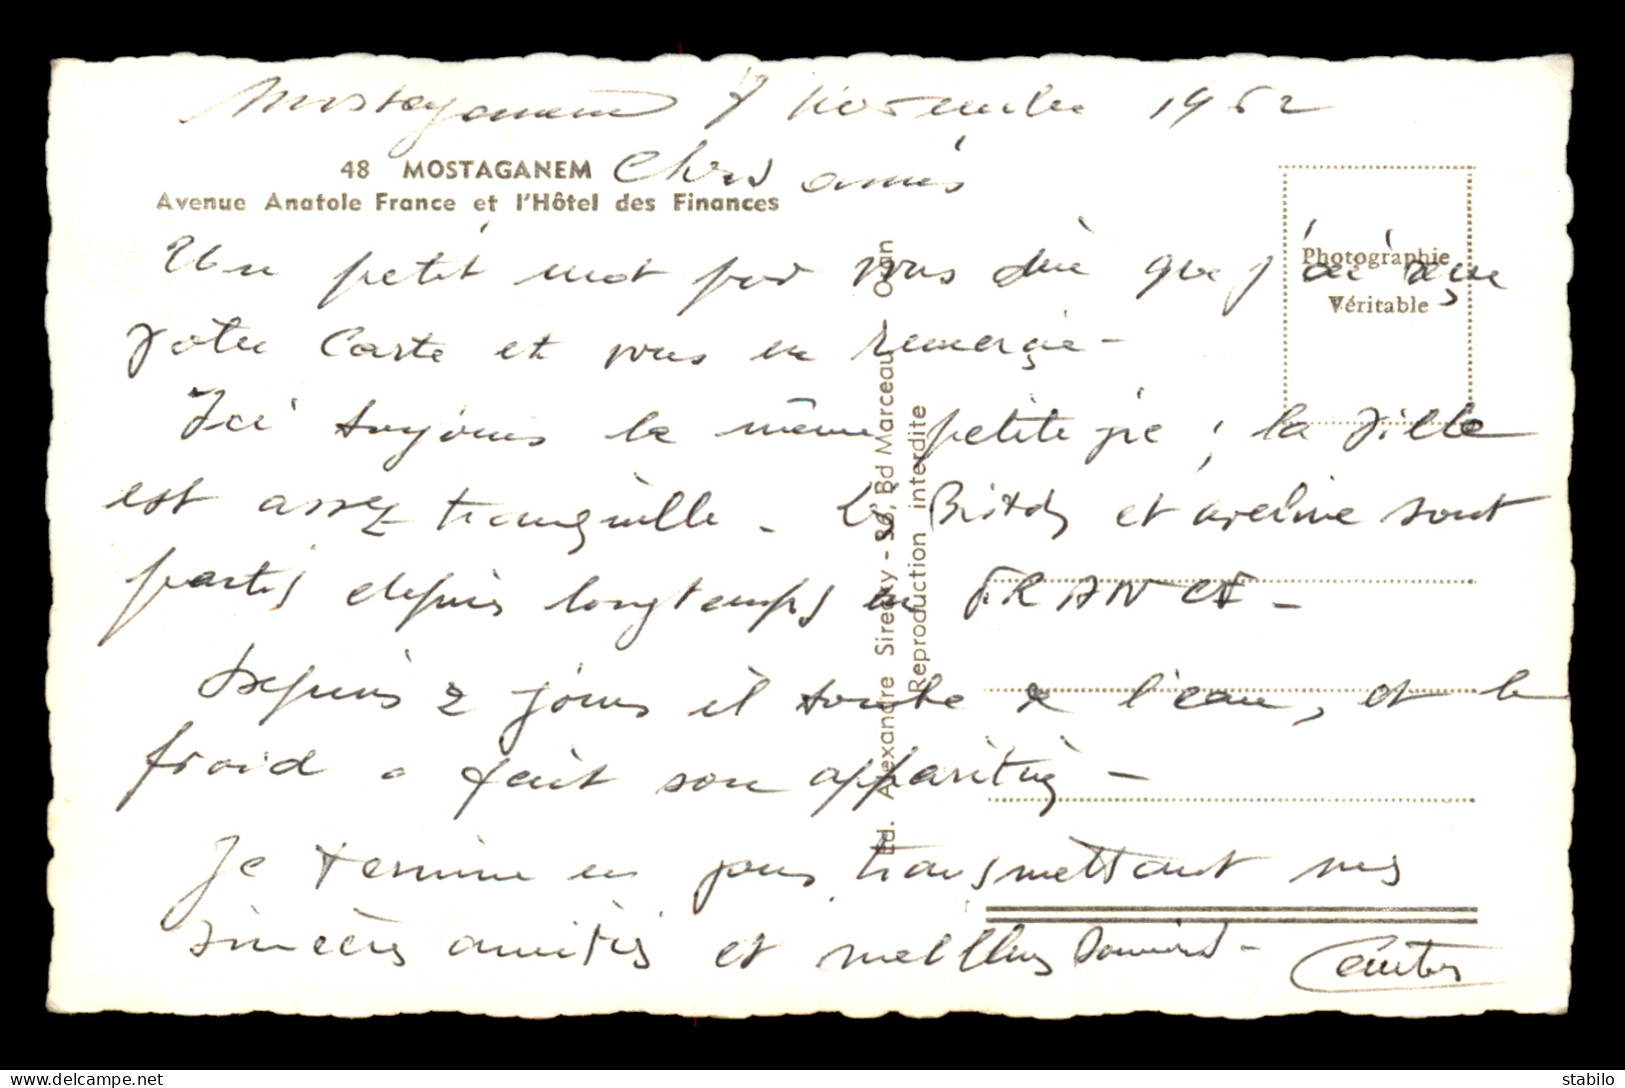 Mostaganem 7 Novembre 1962
48 MOSTAGANEM
Chers amis
Avenue Anatole France et l'Hôtel des Finances
Un petit mot pour vous dire que j'ai reçu
votre Carte et vous en remercie -
Ici toujours la même petite vie ; la ville
est assez tranquille - Les et sont
partis depuis longtemps en FRANCE -
Depuis 2 jours il tombe de l'eau, et le
froid a fait son apparition -
Je termine en vous transmettant mes
sincères amitiés et meilleurs souvenirs -
Photographie
Véritable
Ed. Alexandre Sirecky - Bd Marceau - Oran
Reproduction interdite
stabilo